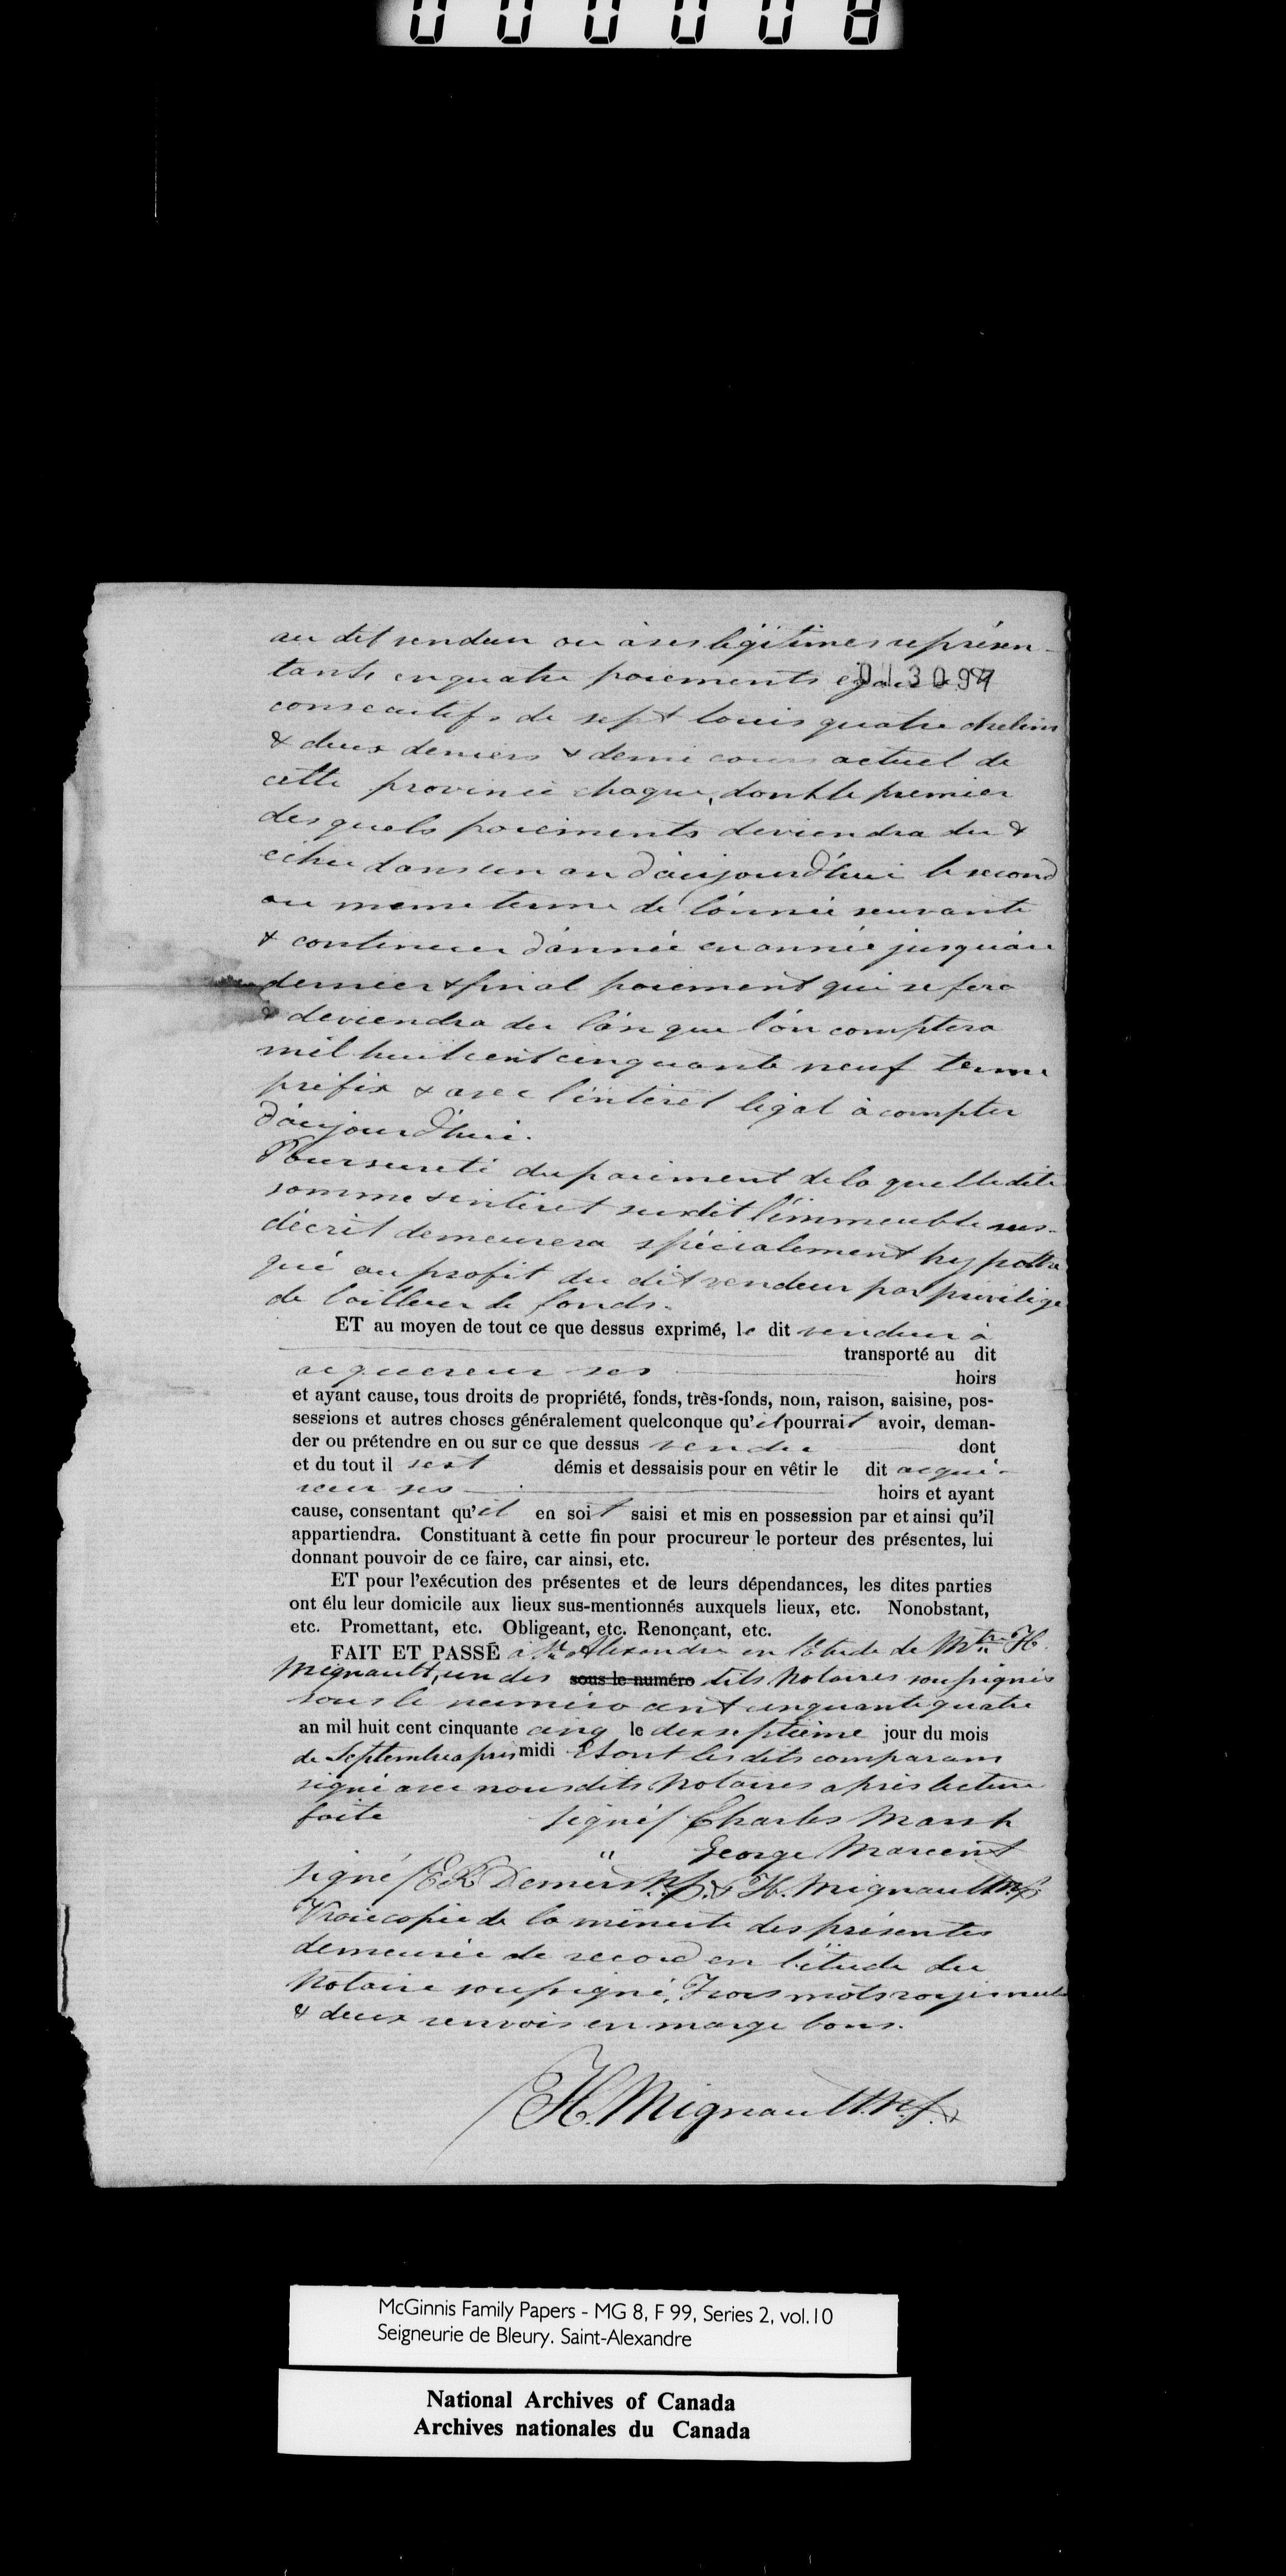 000008
au dit vendeur ou à ses légitimes représen-
tants en quatre paiements égaux &
013097
consecutifs de sept louis quatre chelins
& deux deniers & demi cours actuel de
cette province chaque, dont le premier
des quels paiements deviendra du &
échu dans un an d'aujourd'hui le second
au meme terme de l'année suivante
& continuer d'année en année jusqu'au
dernier & final paiement qui se fera
& deviendra du l'an que l'on comptera
mil huit cent cinquante neuf terme
préfix & avec l'intéret légal à compter
d'aujourd'hui.
Pour sureté du paiement de la quelle dite
somme & intéret susdit l'immeuble sus-
décrit demeurera spécialement hypothé
qué au profit du dit vendeur par privilége
de bailleur de fonds.
ET au moyen de tout ce que dessus exprimé, le dit vendeur à
transporté au dit
acquereur ses hoirs
et ayant cause, tous droits de propriété, fonds, très-fonds, nom, raison, saisine, pos-
sessions et autres choses généralement quelconque qu'il pourrait avoir, deman-
der ou prétendre en ou sur ce que dessus vendu dont
et du tout il sest démis et dessaisis pour en vêtir le dit acqué-
reur ses hoirs et ayant
cause, consentant qu'il en soit saisi et mis en possession par et ainsi qu'il
appartiendra. Constituant à cette fin pour procureur le porteur des présentes, lui
donnant pouvoir de ce faire, car ainsi, etc.
ET pour l'exécution des présentes et de leurs dépendances, les dites parties
ont élu leur domicile aux lieux sus-mentionnés auxquels lieux, etc. Nonobstant,
etc. Promettant, etc. Obligeant, etc. Renonçant, etc.
FAIT ET PASSÉ à St. Alexandre en l'étude de Mtre H.
Mignault, un des sous le numéro dits Notaires soussignés
sous le numéro cent cinquante quatre
an mil huit cent cinquante cinq le dix septième jour du mois
de Septembre après midi Et ont les dits comparans
signé avec nous dits Notaires après lecture
faite signé/ Charles Marsh
" George Marcent
signé/ E.R. Demers N.P. & H. Mignault N.P.
Vraie copie de la minute des présentes
demeurée de record en l'étude du
Notaire soussigné, Trois mots rayés nuls
& deux renvois en marge bons.
H. Mignault N.P.
McGinnis Family Papers - MG 8, F 99, Series 2, vol.10
Seigneurie de Bleury. Saint-Alexandre
National Archives of Canada
Archives nationales du Canada